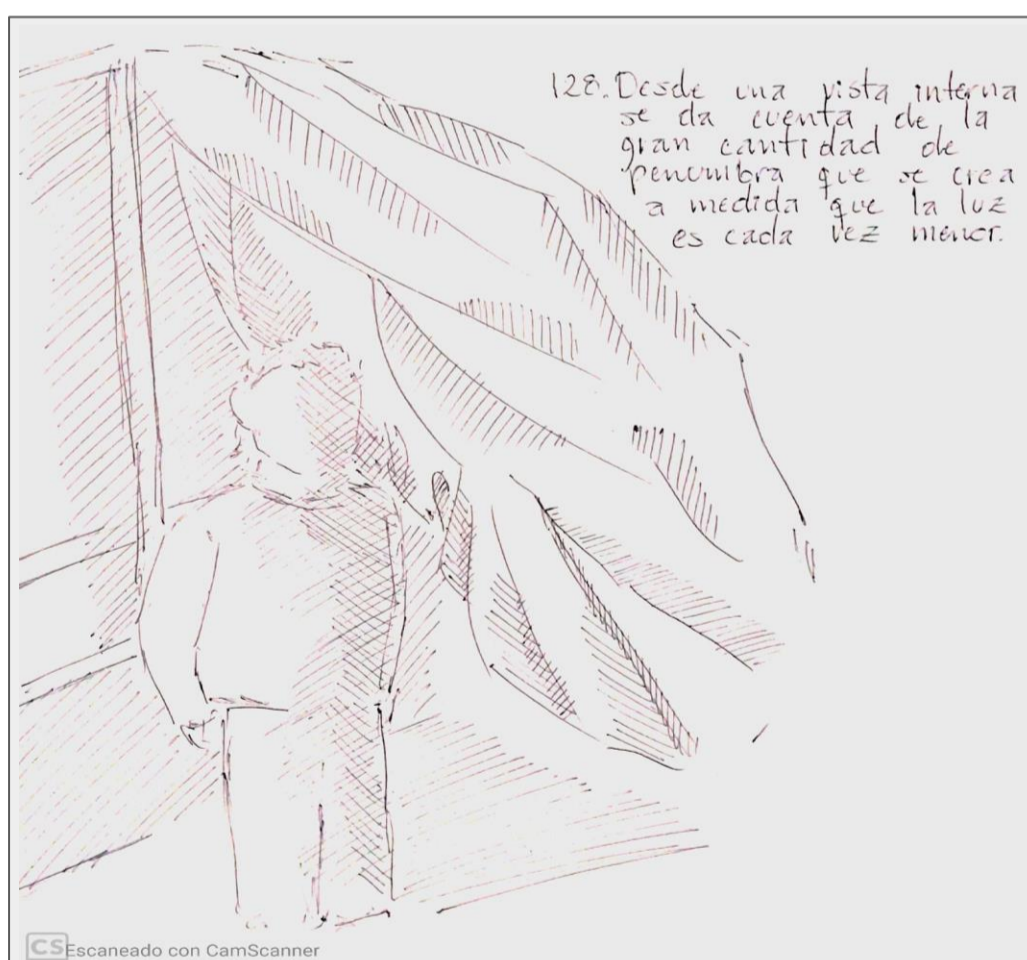 128. Desde una vista interna
se da cuenta de la
gran cantidad de
penumbra que se crea
a medida que la luz
es cada vez menor.
CS Escaneado con CamScanner